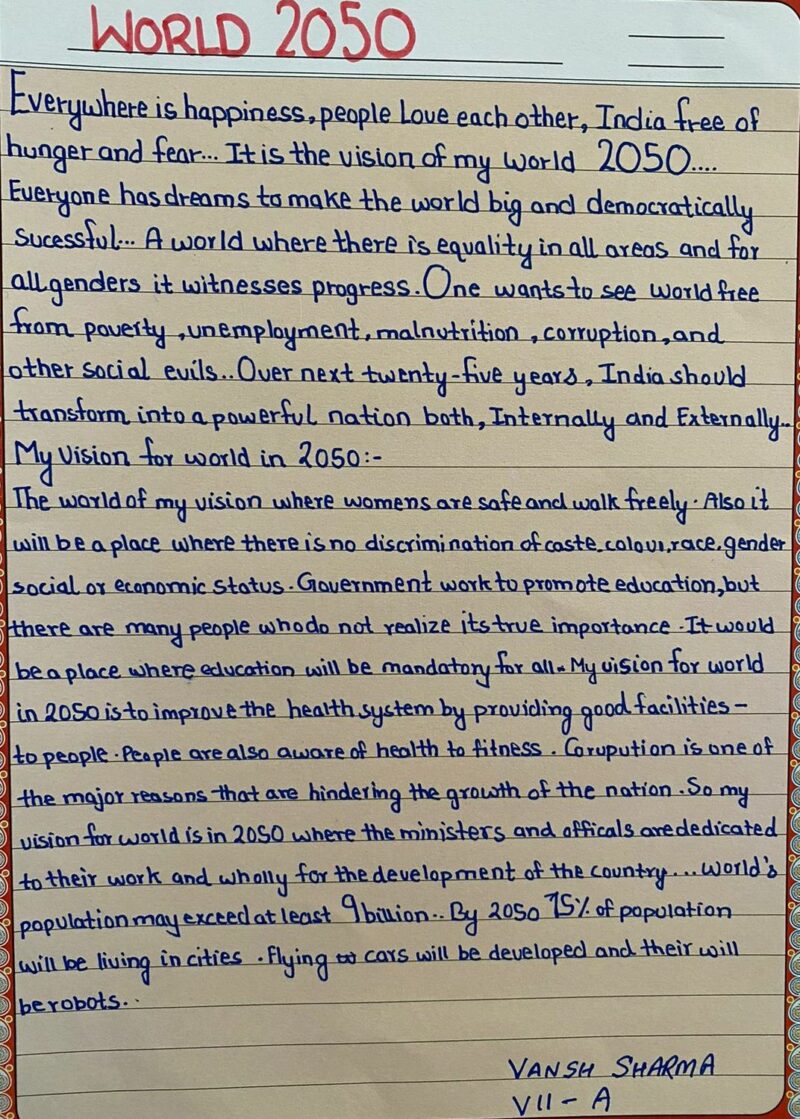 WORLD 2050
Everywhere is happiness, people Love each other, India free of
hunger and fear... It is the vision of my world 2050....
Everyone has dreams to make the world big and democratically
sucessful... A world where there is equality in all areas and for
all genders it witnesses progress. One wants to see world free
from poverty, unemployment, malnutrition, corruption, and
other social evils.. Over next twenty-five years, India should
transform into a powerful nation both, Internally and Externally..
My Vision for world in 2050:-
The world of my vision where womens are safe and walk freely. Also it
will be a place where there is no discrimination of caste, colour, race, gender
social or economic status. Government work to promote education, but
there are many people who do not realize its true importance. It would
be a place where education will be mandatory for all. My vision for world
in 2050 is to improve the health system by providing good facilities -
to people. People are also aware of health to fitness. Corupution is one of
the major reasons that are hindering the growth of the nation. So my
vision for world is in 2050 where the ministers and officals are dedicated
to their work and wholly for the development of the country... World's
population may exceed at least 9 billion.. By 2050 75% of population
will be living in cities. Flying cars will be developed and their will
be robots..
VANSH SHARMA
VII - A